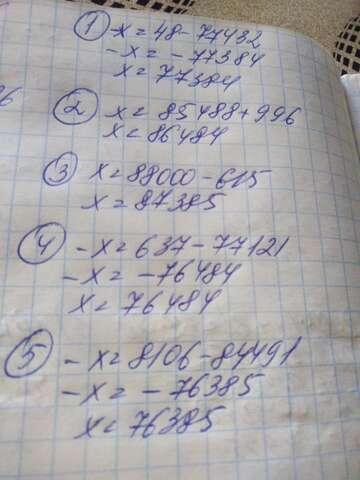 ① -x = 48 - 77432
-x = -77384
x = 77384
② x = 85488 + 996
x = 86484
③ x = 88000 - 615
x = 87385
④ -x = 637 - 77121
-x = -76484
x = 76484
⑤ -x = 8106 - 84491
-x = -76385
x = 76385